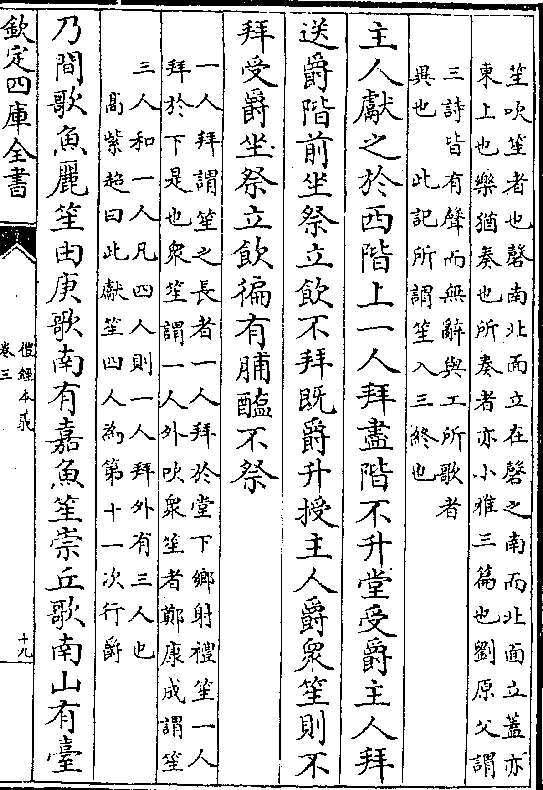 笙吹笙者也磬南北面立在磬之南而北面立蓋亦
東上也樂猶奏也所奏者亦小雅三篇也劉原父謂
三詩皆有聲而無辭與工所歌者
異也 此記所謂笙入三終也
主人獻之於西階上一人拜盡階不升堂受爵主人拜
送爵階前坐祭立飲不拜既爵升授主人爵衆笙則不
拜受爵坐祭立飲徧有脯醢不祭
一人拜謂笙之長者一人拜於堂下鄉射禮笙一人
拜於下是也衆笙謂一人外吹衆笙者鄭康成謂笙
三人和一人凡四人則一人拜外有三人也
髙紫超曰此獻笙四人為第十一次行爵
乃間歌魚麗笙由庚歌南有嘉魚笙崇丘歌南山有臺
欽定四庫全書
禮經本義
卷三
十九